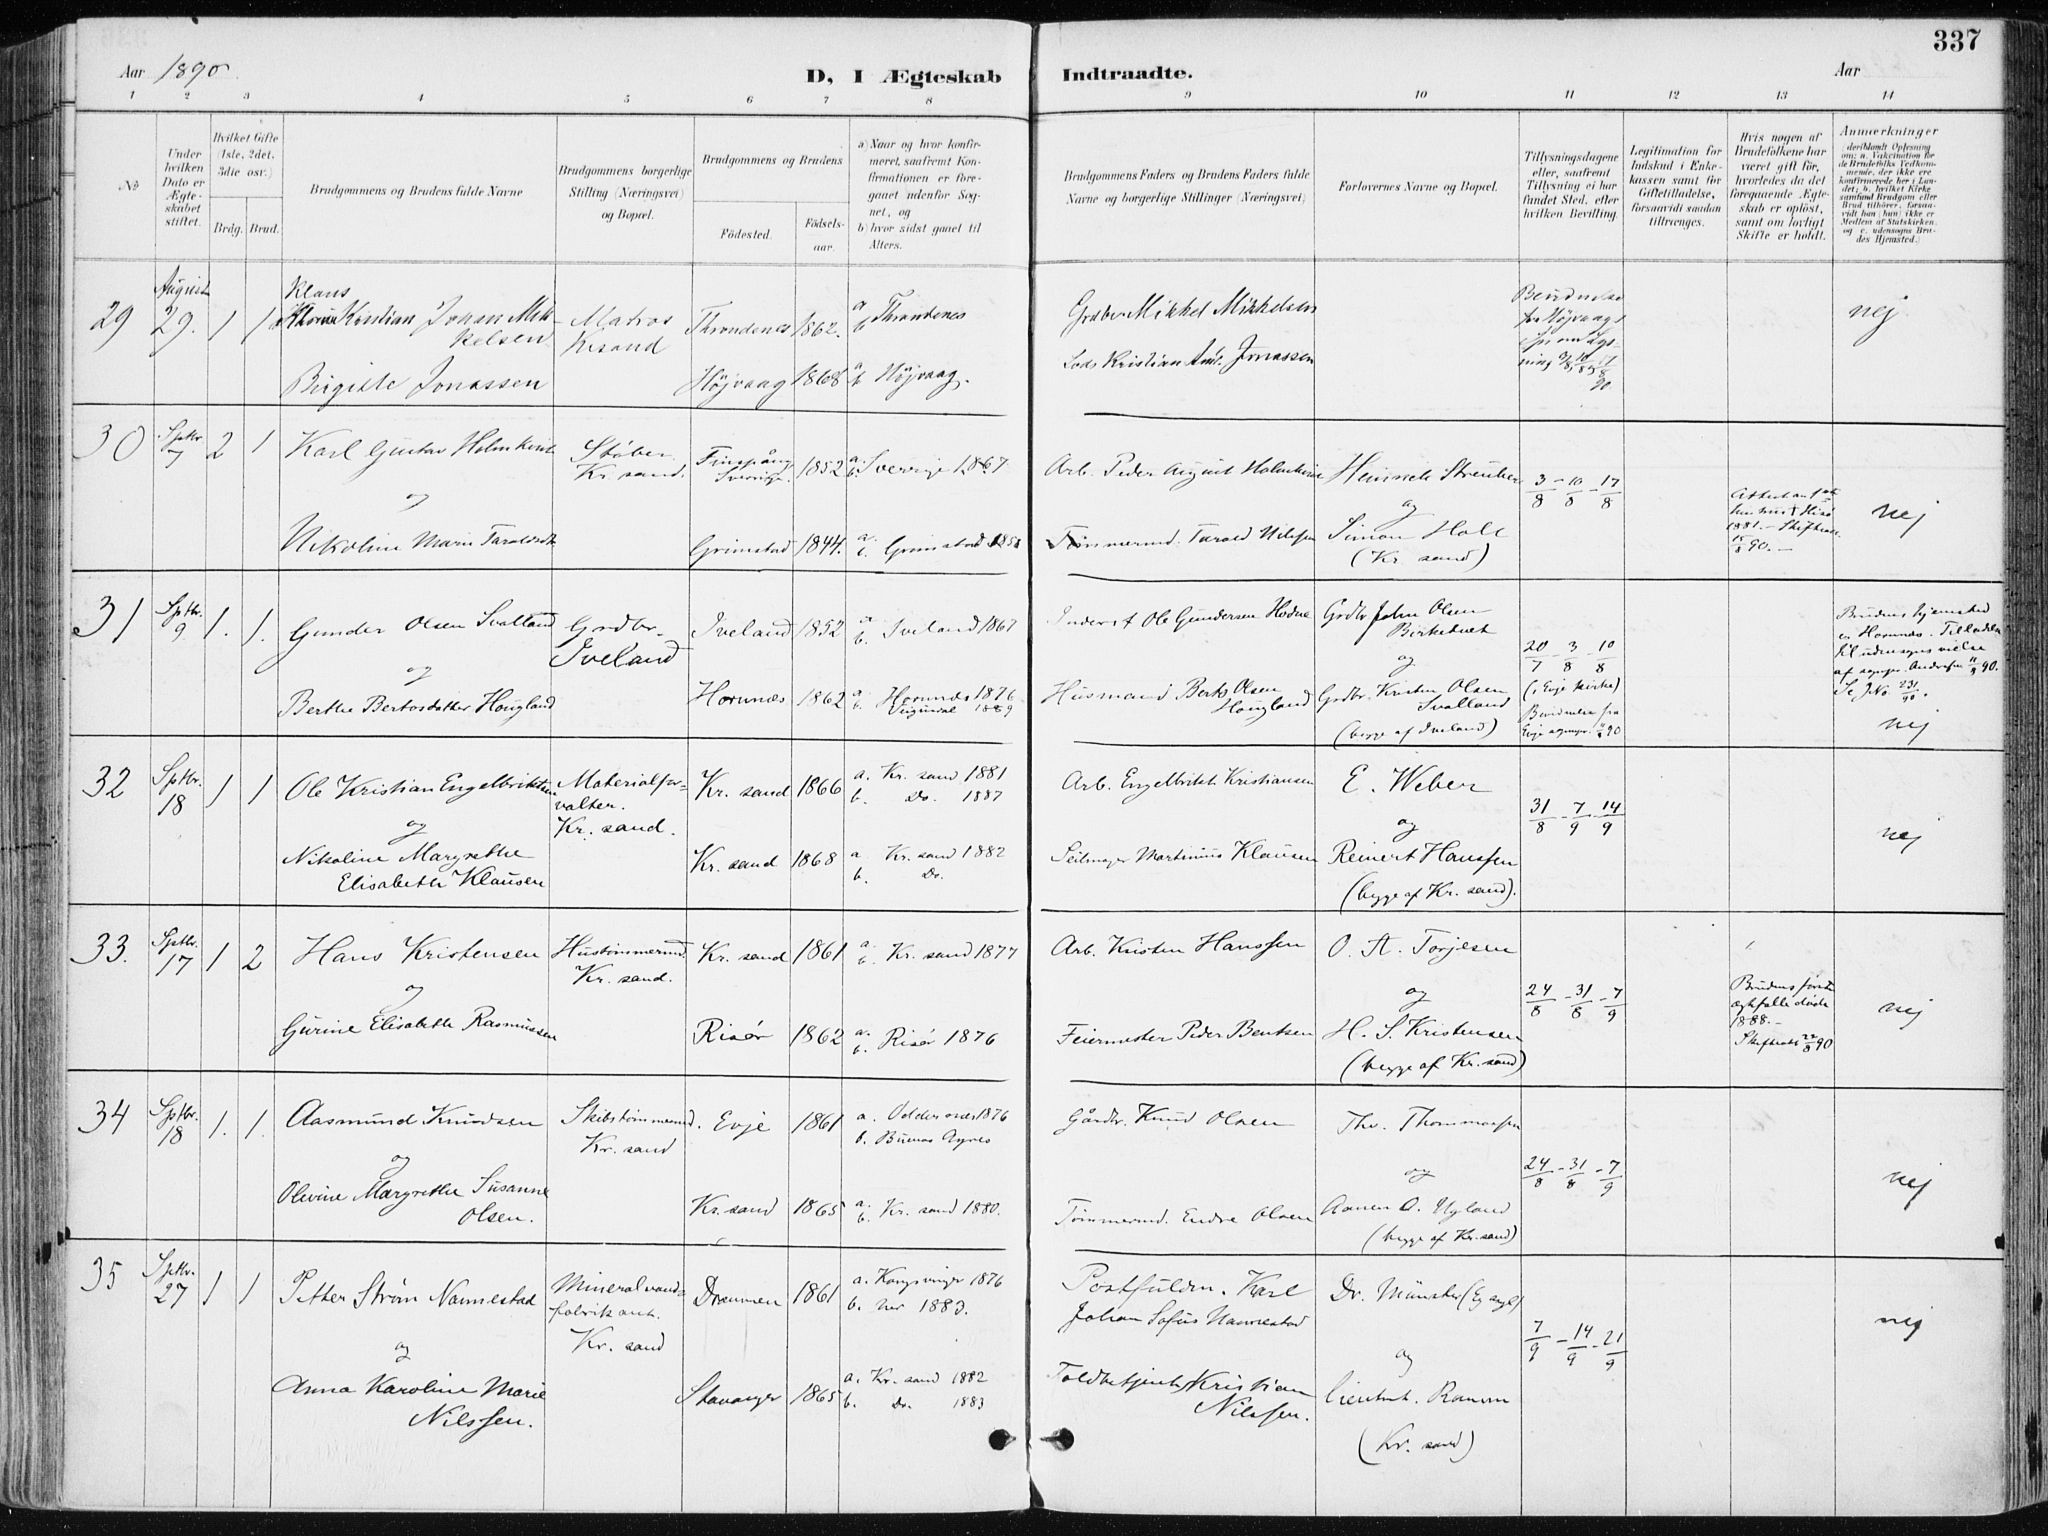 337
Aar 1890.
D, I Ægteskab Indtraadte.
Aar
1 2 3 4 5 6 7 8 9 10 11 12 13 14
No
Under hvilken Dato er Ægteskabet stiftet.
Hvilket Gifte (1ste, 2det, 3die osv.)
Brdg. Brud.
Brudgommens og Brudens fulde Navne
Brudgommens borgerlige Stilling (Næringsvei) og Bopæl.
Brudgommens og Brudens
Födested.
Födselsaar.
a) Naar og hvor konfirmeret, saafremt Konfirmationen er foregaaet udenfor Sognet, og
b) hvor sidst gaaet til Alters.
Brudgommens Faders og Brudens Faders fulde Navne og borgerlige Stillinger (Næringsvei)
Forlovernes Navne og Bopæl.
Tillysningsdagene eller, saafremt Tillysning ei har fundet Sted, efter hvilken Bevilling.
Legitimation for Indskud i Enkekassen samt for Giftetilladelse, forsaavidt saadan tiltrænges.
Hvis nogen af Brudefolkene har været gift för, hvorledes da det foregaaende Ægteskab er oplöst, samt om lovligt Skifte er holdt.
Anmærkninger (deriblandt Oplysning om: a. Vakcination for de Brudefolks Vedkommende, der ikke ere konfirmerede her i Landet; b. hvilket Kirkesamfund Brudgom eller Brud tilhörer, forsaavidt han (hun) ikke er Medlem af Statskirken, og c. udensogns Brudes Hjemsted.)
29 August 29. 1 1 Klaus Kristian Johan Mikkelsen Matros Krsand Throndenes 1862. a b Throndenes Grdbr Mikkel Mikkelsen nej
Birgitte Jonassen Højvaag 1868 a b Højvaag. Lods Kristian Jonassen
30 Sptbr. 7 2 1 Karl Gustav Holmkvist Støber Kr. sand. Finspång Sverrige. 1852 a. b. Sverrige 1867 Arb. Peder August Holmkvist Heinrich Streuber 3/8 - 10/8 - 17/8 nej
og
Nikoline Marie Taraldsdtr Grimstad 1844. a. b. Grimstad Tømmermd. Tarald Nilssen og Simon Holt (Kr. sand)
1881. - Skifteatt 15/8 90. -
31 Sptbr. 9 1. 1. Gunder Olsen Svalland Grdbr. Iveland Iveland 1852 a. b. Iveland 1867 Inderst Ole Gundersen Hodne Grdbr John Olsen Birketveit 20/7 - 3/8 - 10/8 (i Evje Kirke)
og
Berthe Bertosdatter Hougland Hornnæs 1862 a. Hornnæs 1876 b. Vegusdal 1889 Husmand Berto Olsen Hougland og Grdbr. Kristen Olsen Svalland (begge af Iveland)
Brudens hjemsted er Hornnes. Tilladelse til udensogns vielse af sognepr. 90. Se J No. 231/90. nej
32 Sptbr. 18 1 1 Ole Kristian Engelbriktsen Materialforvalter. Kr. sand. Kr. sand 1866 a. Kr. sand 1881 b. Do. 1887 Arb. Engelbrikt Kristiansen E. Weber 31/8 - 7/9 - 14/9 nej
og
Nikoline Margrethe Elisabeth Klausen Kr. sand 1868 a. Kr. sand 1882 b. Do. Seilmager Martinius Klausen og Reinert Hanssen (begge af Kr. sand).
33. Sptbr. 17 1 2 Hans Kristensen Hustømmermd. Kr. sand. Kr. sand 1861 a. b. Kr. sand 1877 Arb. Kristen Hanssen O. A. Torjesen 24/8 - 31/8 - 7/9 nej
og
Gurine Elisabeth Rasmussen Risør 1862 a. b. Risør 1876 Feiermester Peder Bentsen og H. S. Kristensen (begge af Kr. sand)
Brudens første ægtefælle døde 1888. - Skifteatt 22/8 90
34 Sptbr. 18 1. 1. Aasmund Knudsen Skibstømmermd. Kr. sand Evje 1861 a. Oddernæs 1876 b. Buenos Ayres Gårdbr. Knud Olsen Thv. Thommassen 24/8 - 31/8 - 7/9 nej
og
Olivine Margrethe Susanne Olsen. Kr. sand 1865 a. b. Kr. sand 1880. Tømmermd. Endre Olsen og Aanen O. Ugland (begge af Kr. sand)
35 Sptbr. 27 1 1 Petter Strøm Nannestad Mineralvandfabrikant. Kr. sand Drammen 1861 a. Kongsvinger 1876 b. her 1883. Postfuldm. Karl Johan Sofus Nannestad Dr. Münster 7/9 - 14/9 - 21/9 nej
og
Anna Karoline Marie Nilssen. Stavanger 1865 a. Kr. sand 1882 b. Do. 1883 Toldbetjent Kristian Nilssen. og Lieutnt. Ramm (Kr. sand)